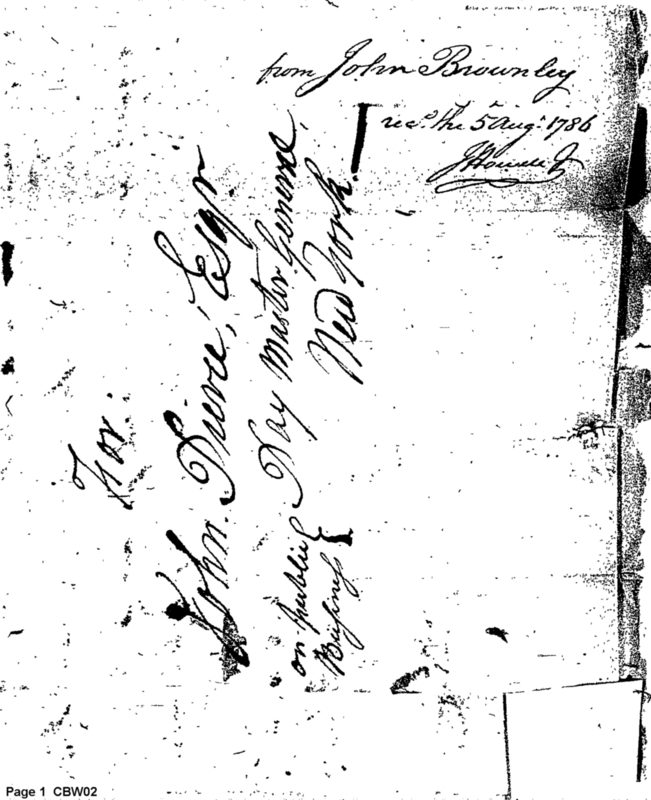 from John Brownley
recd. the 5 Augt. 1786
JHowell Jr
For.
John. Pierce, Esqr
Pay Master General,
New York.
on public
Businefs
Page 1 CBW02